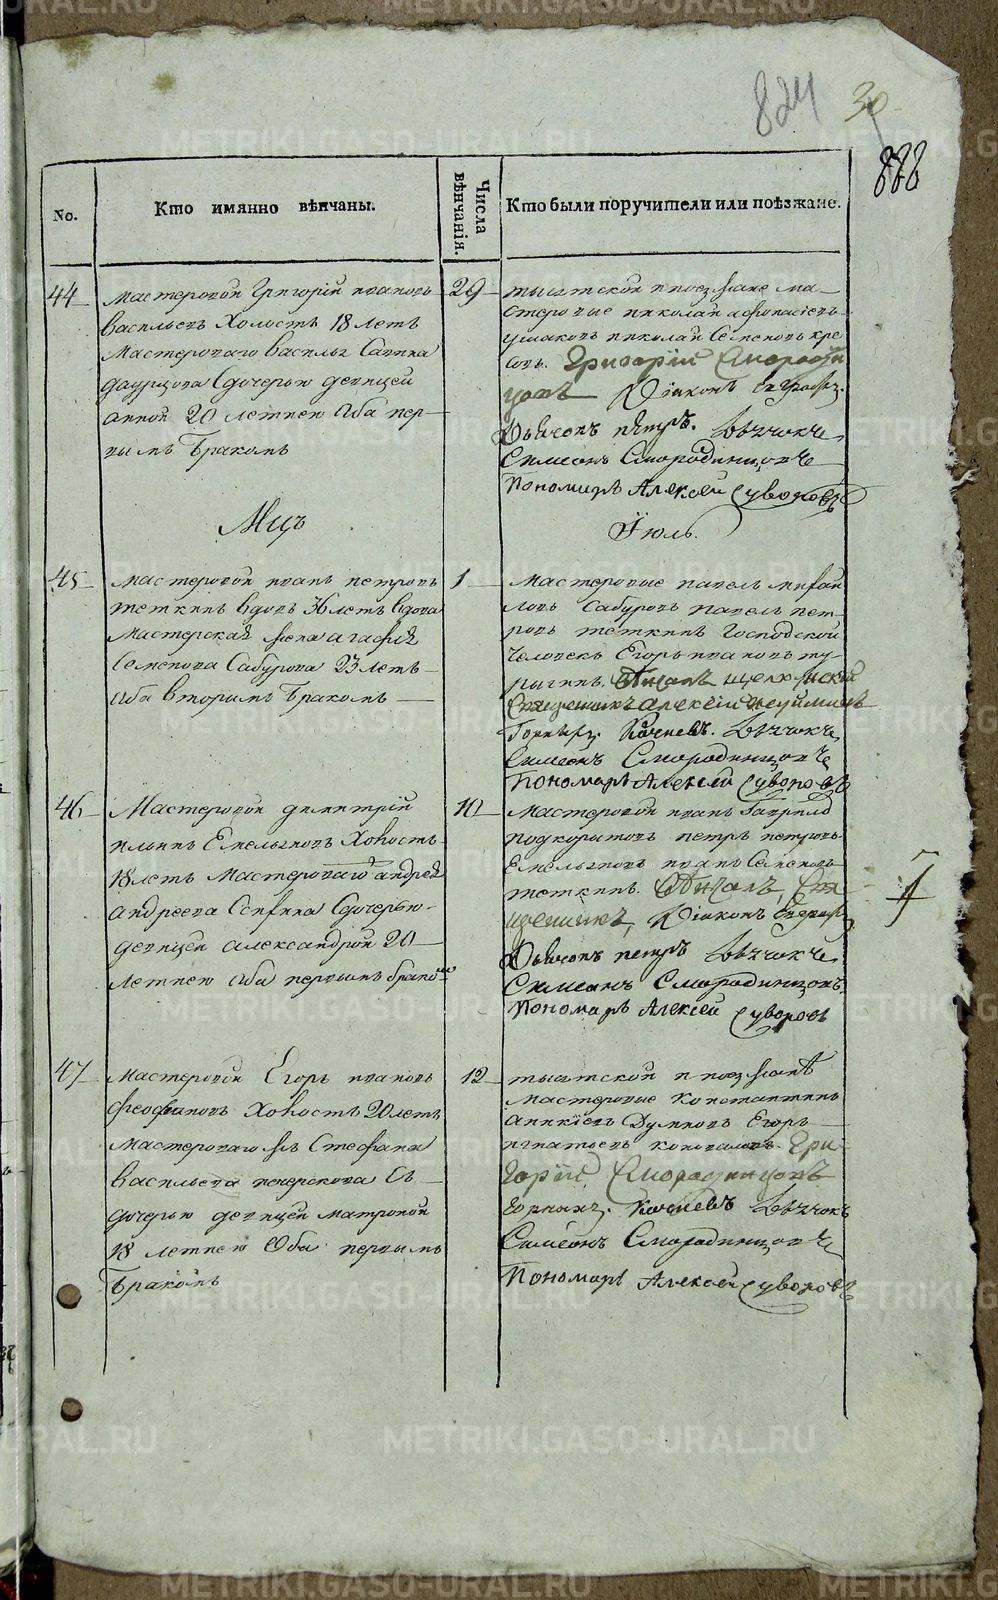 824 30
888
No.
Кто имянно вѣнчаны.
Числа вѣнчанія.
Кто были поручители или поѣзжане.
44
мастеровой Григорій ивановъ
васильевъ холостъ 18 летъ
мастероваго василья Савина
даурцова Сдочерью девицей
анной 20 летнею Оба пер
вымъ бракомъ
29
тысятской и поезжане ма
стеровые николай афонасіевъ
ушаковъ николай Семеновъ кре
совъ. Григорій Смородин
цовъ Діаконъ евграфъ.
Дьячокъ петръ. Дьячокъ
Симеонъ Смородинцовъ
Пономарь Алексей Суворовъ
Мцъ
Іюль.
45
мастеровой иванъ петровъ
теткинъ вдовъ 36 летъ вдова
мастерская жена агафия
Семенова Сабурова 23 летъ
Оба вторымъ бракомъ
1
Мастеровые павелъ михай
ловъ Сабуровъ павелъ пет
ровъ теткинъ Господской
человекъ Егоръ ивановъ ту
рыгинъ.
Священникъ алексій
Дьячокъ
Симеонъ Смородинцовъ
Пономарь Алексей Суворовъ
46
Мастеровой димитрій
ильинъ Емельяновъ холостъ
18 летъ мастероваго андрея
андреева Сдочерью
девицей александрой 20
летнею Оба первымъ бракомъ
10
Мастеровой иванъ Гаврило
подкорытовъ петръ петровъ
Емельяновъ иванъ Семеновъ
теткинъ. Свя
щенникъ, Діаконъ Евграфъ
Дьячокъ петръ Дьячокъ
Симеонъ Смородинцовъ.
Пономарь Алексей Суворовъ
47
Мастеровой Егоръ ивановъ
феофановъ холостъ 20 летъ
мастероваго Стефана
васильева печерскова съ
дочерью девицей матроной
18 летнею Оба первымъ
бракомъ
12
тысятской и поезжанѣ
мастеровые константинъ
аникіевъ Думновъ Егоръ
игнатьевъ коноваловъ. Гри
горій Смородинцовъ
Дьячокъ
Симеонъ Смородинцовъ
Пономарь Алексей Суворовъ
METRIKI.GASO-URAL.RU